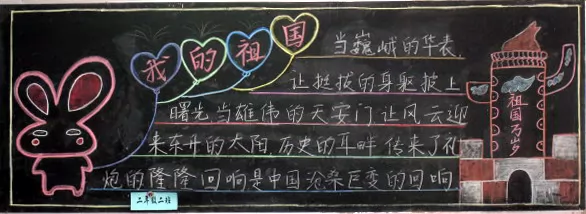 我的祖国
当巍峨的华表.
让挺拔的身躯披上
曙光.当雄伟的天安门让风云迎
来东升的太阳.历史的耳畔传来了礼
炮的隆隆回响是中国沧桑巨变的回响.
祖国万岁
二年级二班